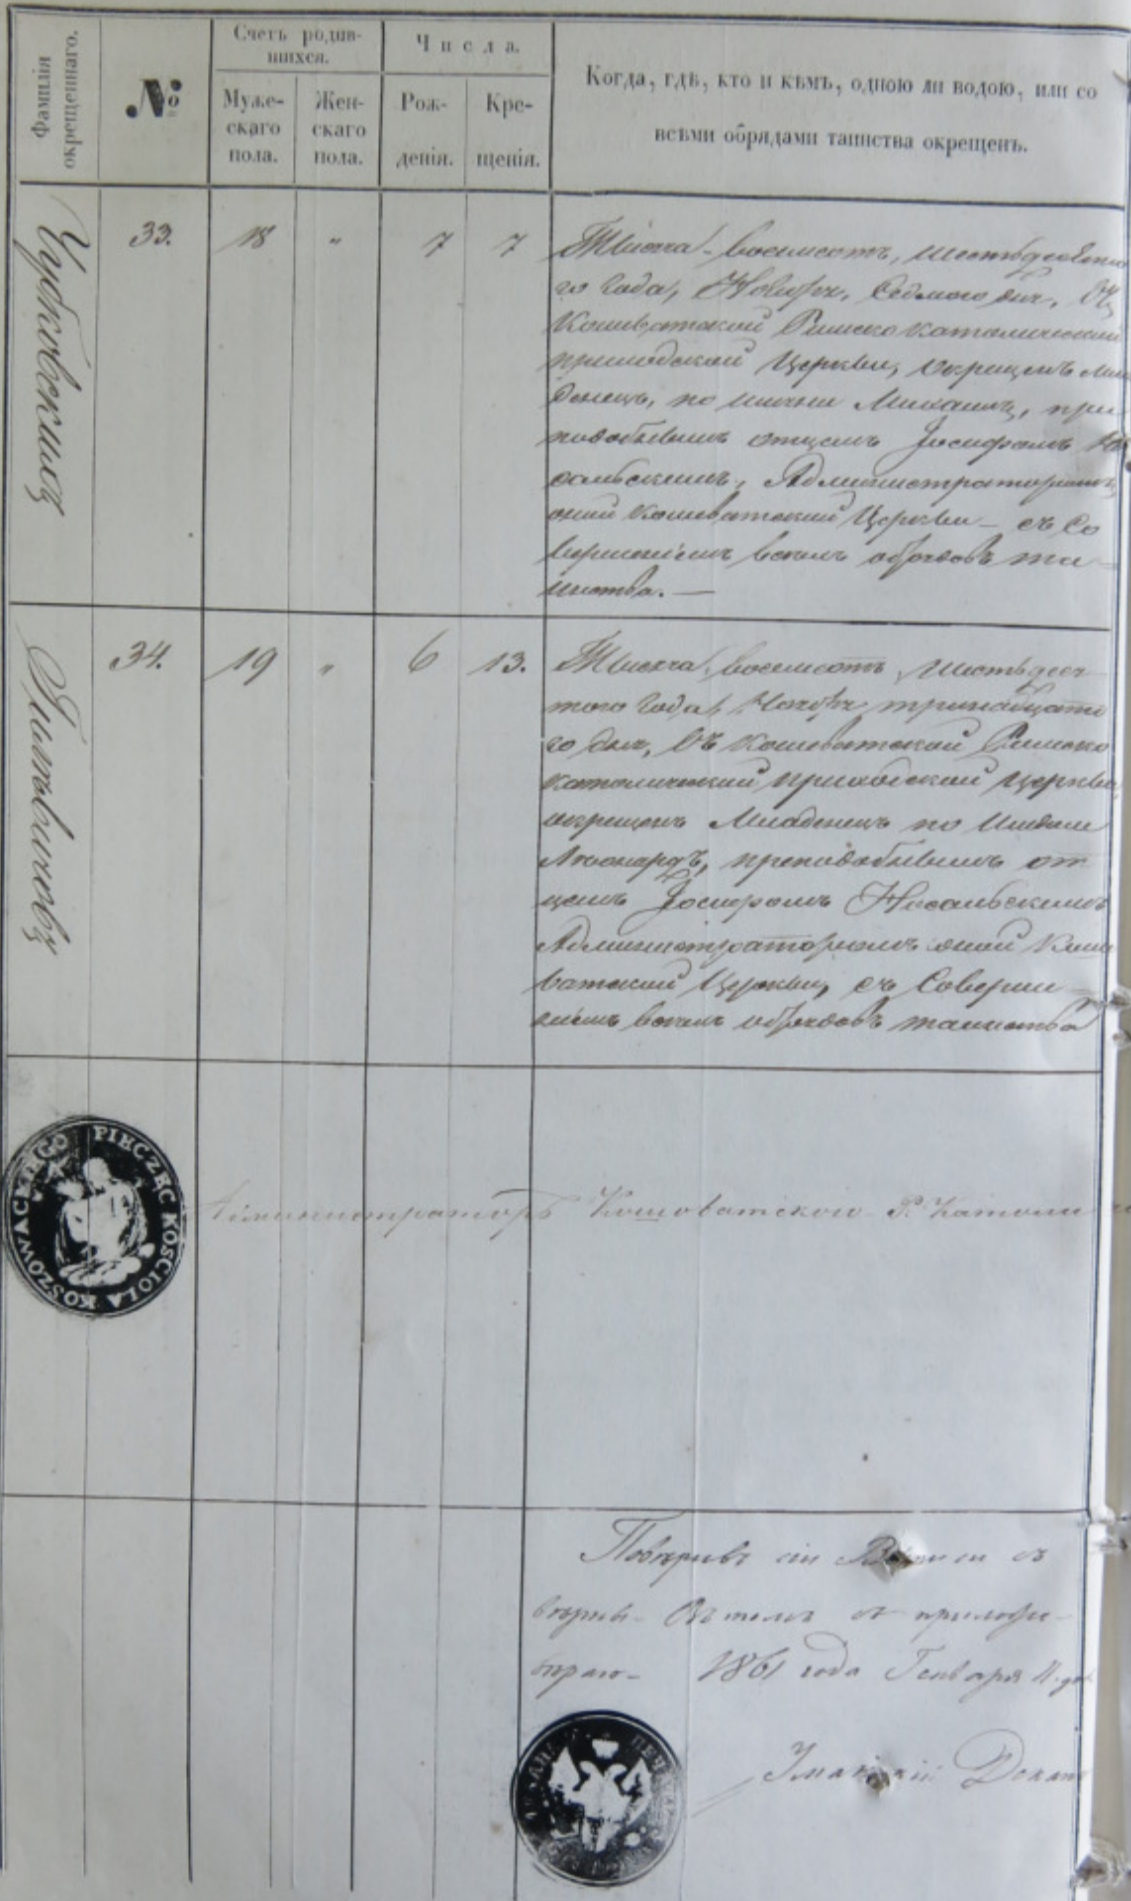 Фамилія окрещеннаго.
№
Счетъ родив-
шихся.
Муже-
скаго
пола.
Жен-
скаго
пола.
Числа.
Рож-
денія.
Кре-
щенія.
Когда, гдѣ, кто и кѣмъ, одною ли водою, или со
всѣми обрядами таинства окрещенъ.
33.
18
"
7
7
Тысяча восемсотъ, шестьдесято
го года, Ноября, седмого дня, Въ
Кошеватской Римско католической
приходской Церкви, окрещенъ Мла
денецъ, по имени Михаилъ, пре
подобнымъ отцемъ Іосифомъ
Администраторомъ
оной Кошеватской Церкви – съ Со
вершеніемъ всехъ обрядовъ таи
нства. —
34.
19
"
6
13.
Тысяча восемсотъ шестьдеся
того года, Ноября тринадцато
го дня, Въ Кошеватской Римско
католической приходской Церкви
окрещенъ Младенецъ по Имени
Леонардъ, преподобнымъ от
цемъ Іосифомъ
Администраторомъ оной Коше
ватской Церкви, съ Соверше
ніемъ всехъ обрядовъ таинства
PIECZEC KOSCIOLA KOSZOWACKIEGO
Администраторъ Кошоватского Р. Католи
Повѣривъ сіи съ
вѣрны – Въ томъ съ прилож
1861 года Генваря 11. дня
Уманскій Декан